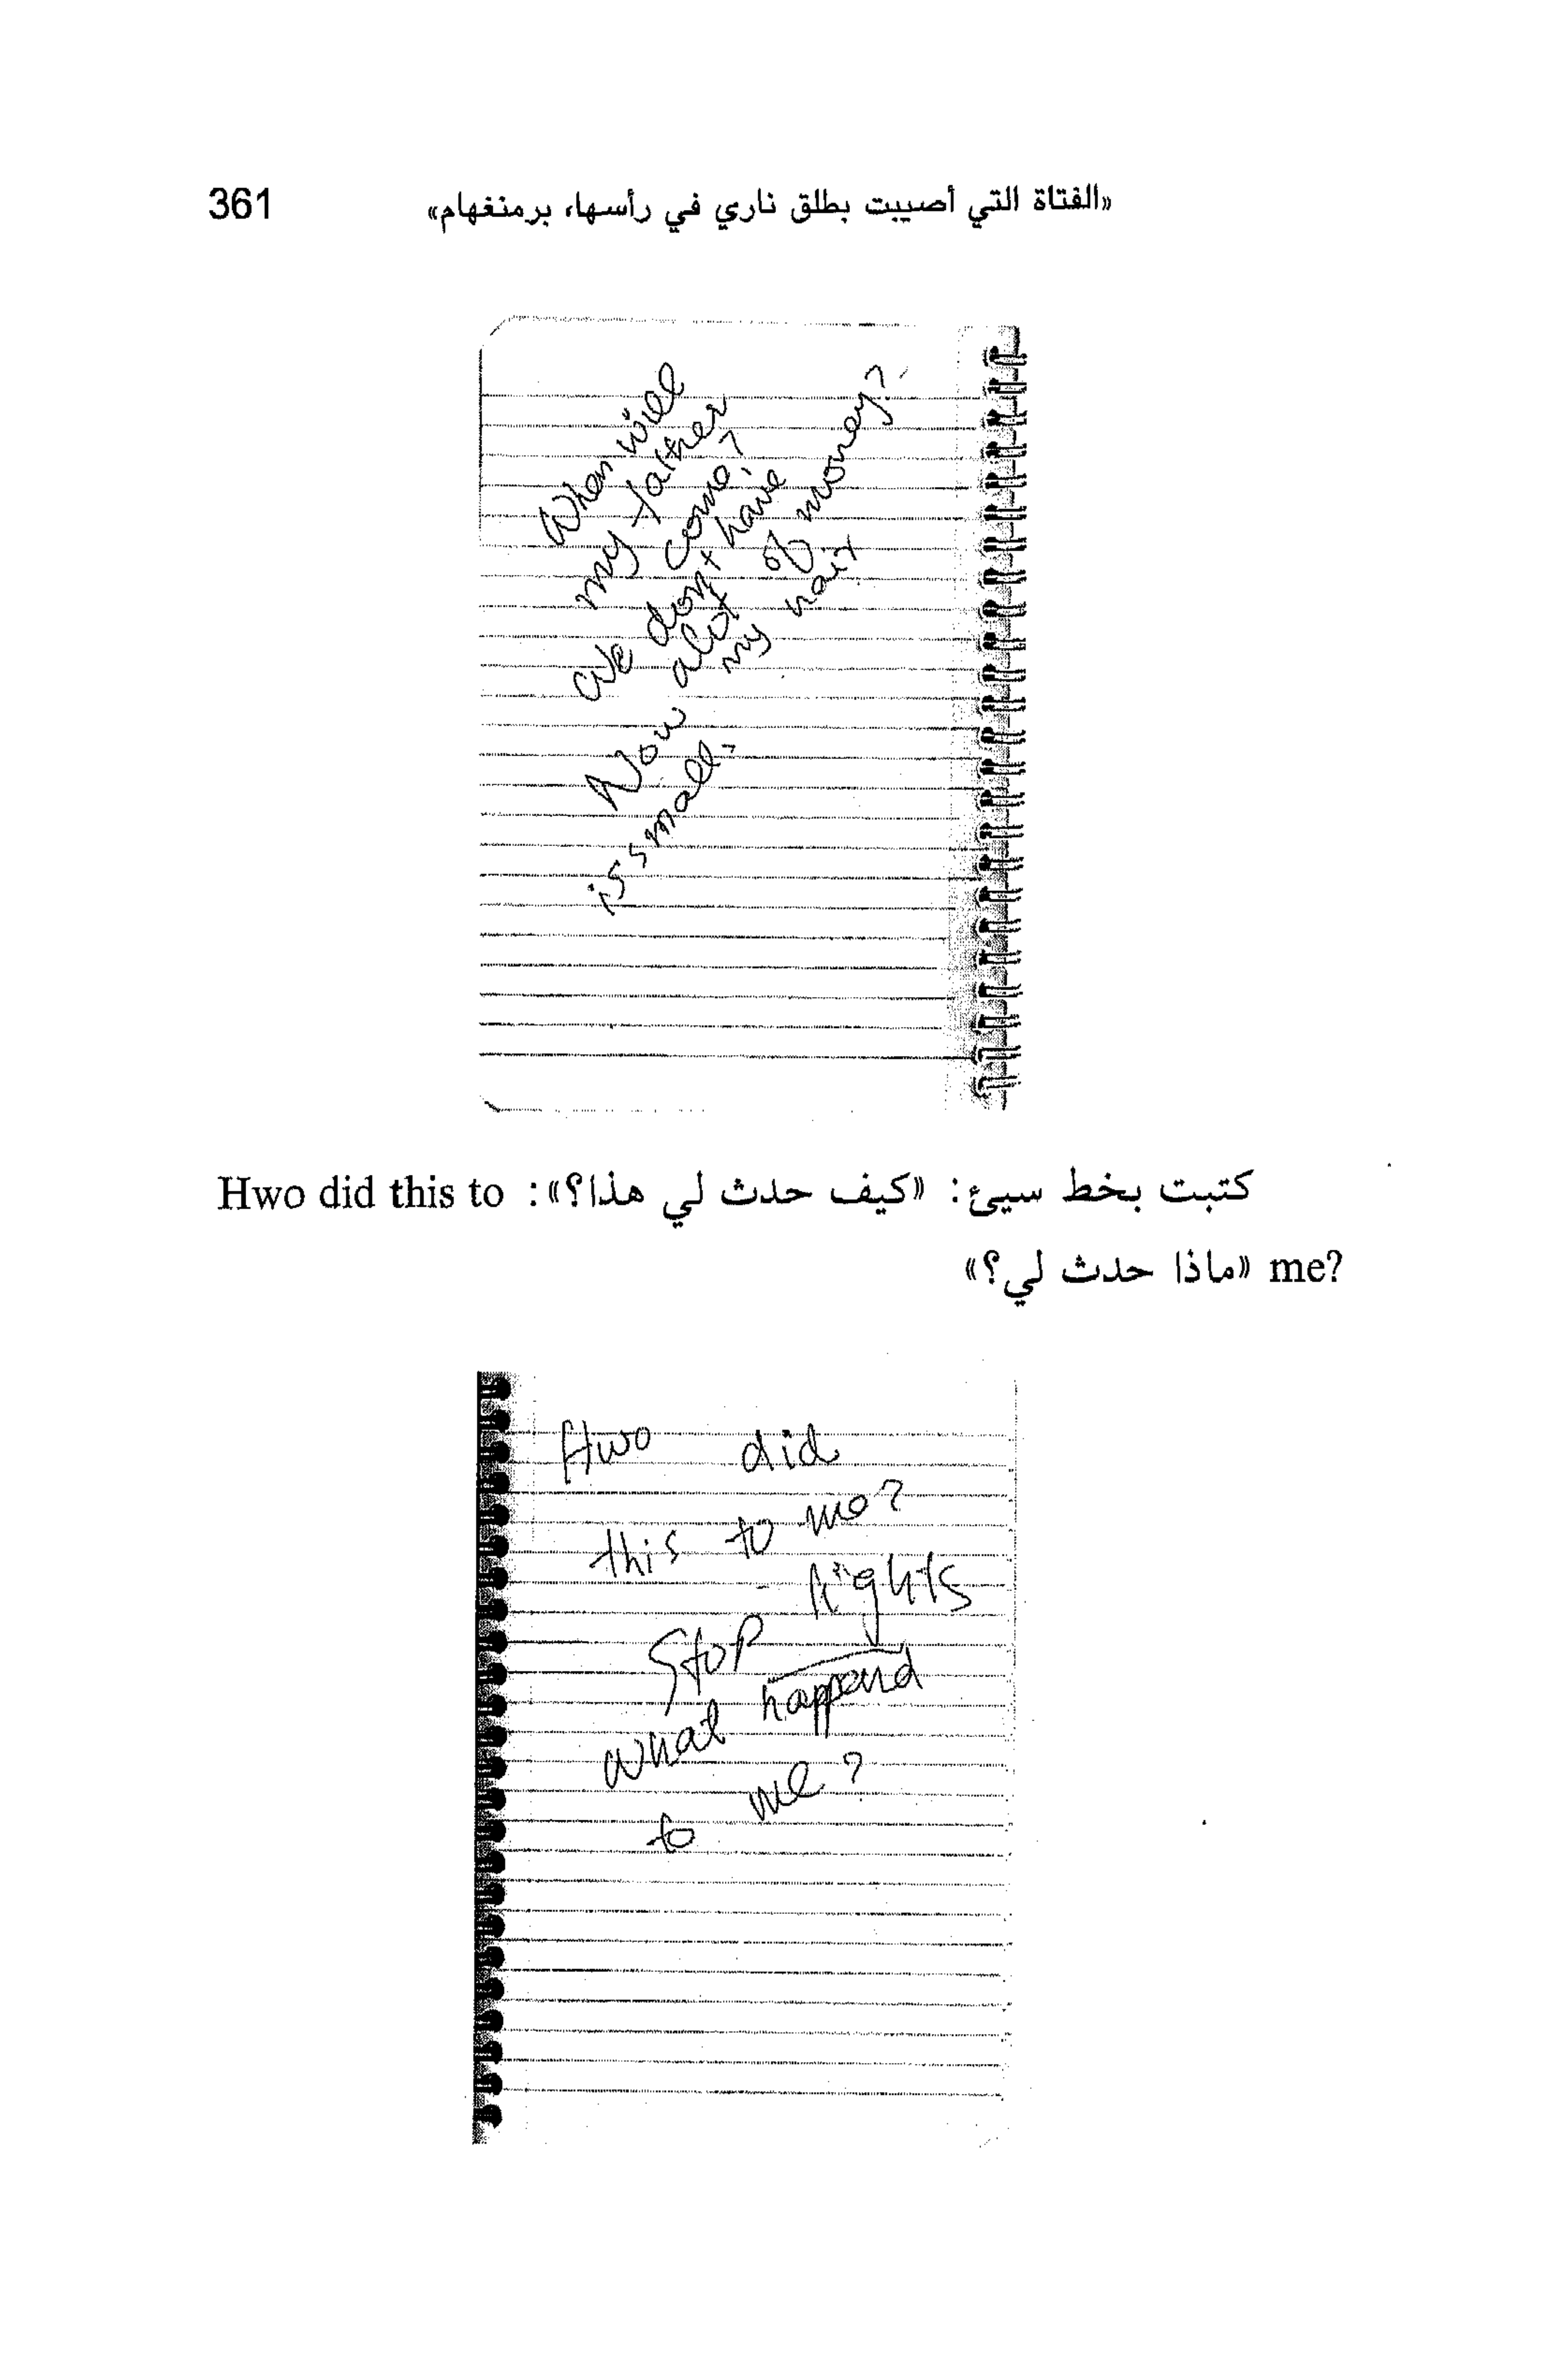 «الفتاة التي أصيبت بطلق ناري في رأسها، برمنغهام» 361
When will
my father
come?
We don't have
alot of money?
Now my hair
is small.
كتبت بخط سيئ: «كيف حدث لي هذا؟»: Hwo did this to
me? «ماذا حدث لي؟»
Hwo did
this to me?
Stop lights
what happend
to me?